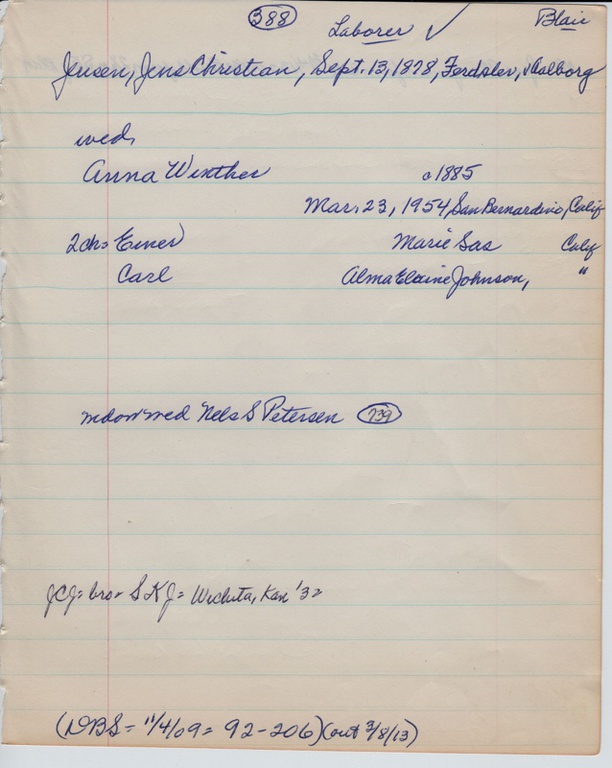 388
Laborer ✓ Blair
Jensen, Jens Christian, Sept. 13, 1878, Ferdslev, v Aalborg
wed,
Anna Winther c1885
Mar. 23, 1954, San Bernardino, Calif
2ch= Einer Marie Sas Calif
Carl Alma Elaine Johnson, "
widow wed Nels S Petersen 739
JCJ= bro= S K J= Wichita, Kan '32
(DBS= 11/4/09= 92-206)(out 3/8/13)